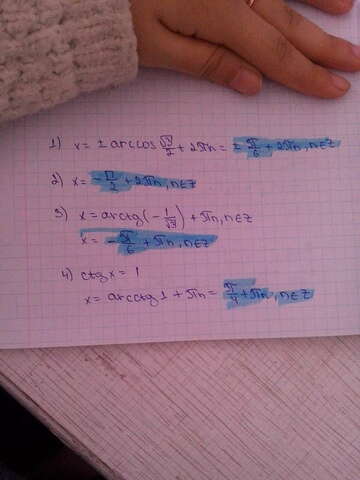 1) x = ± arccos √3/2 + 2πn = ± π/6 + 2πn, n∈Z
2) x = -π/2 + 2πn, n∈Z
3) x = arctg(-1/√3) + πn, n∈Z
x = -π/6 + πn, n∈Z
4) ctg x = 1
x = arcctg 1 + πn = π/4 + πn, n∈Z